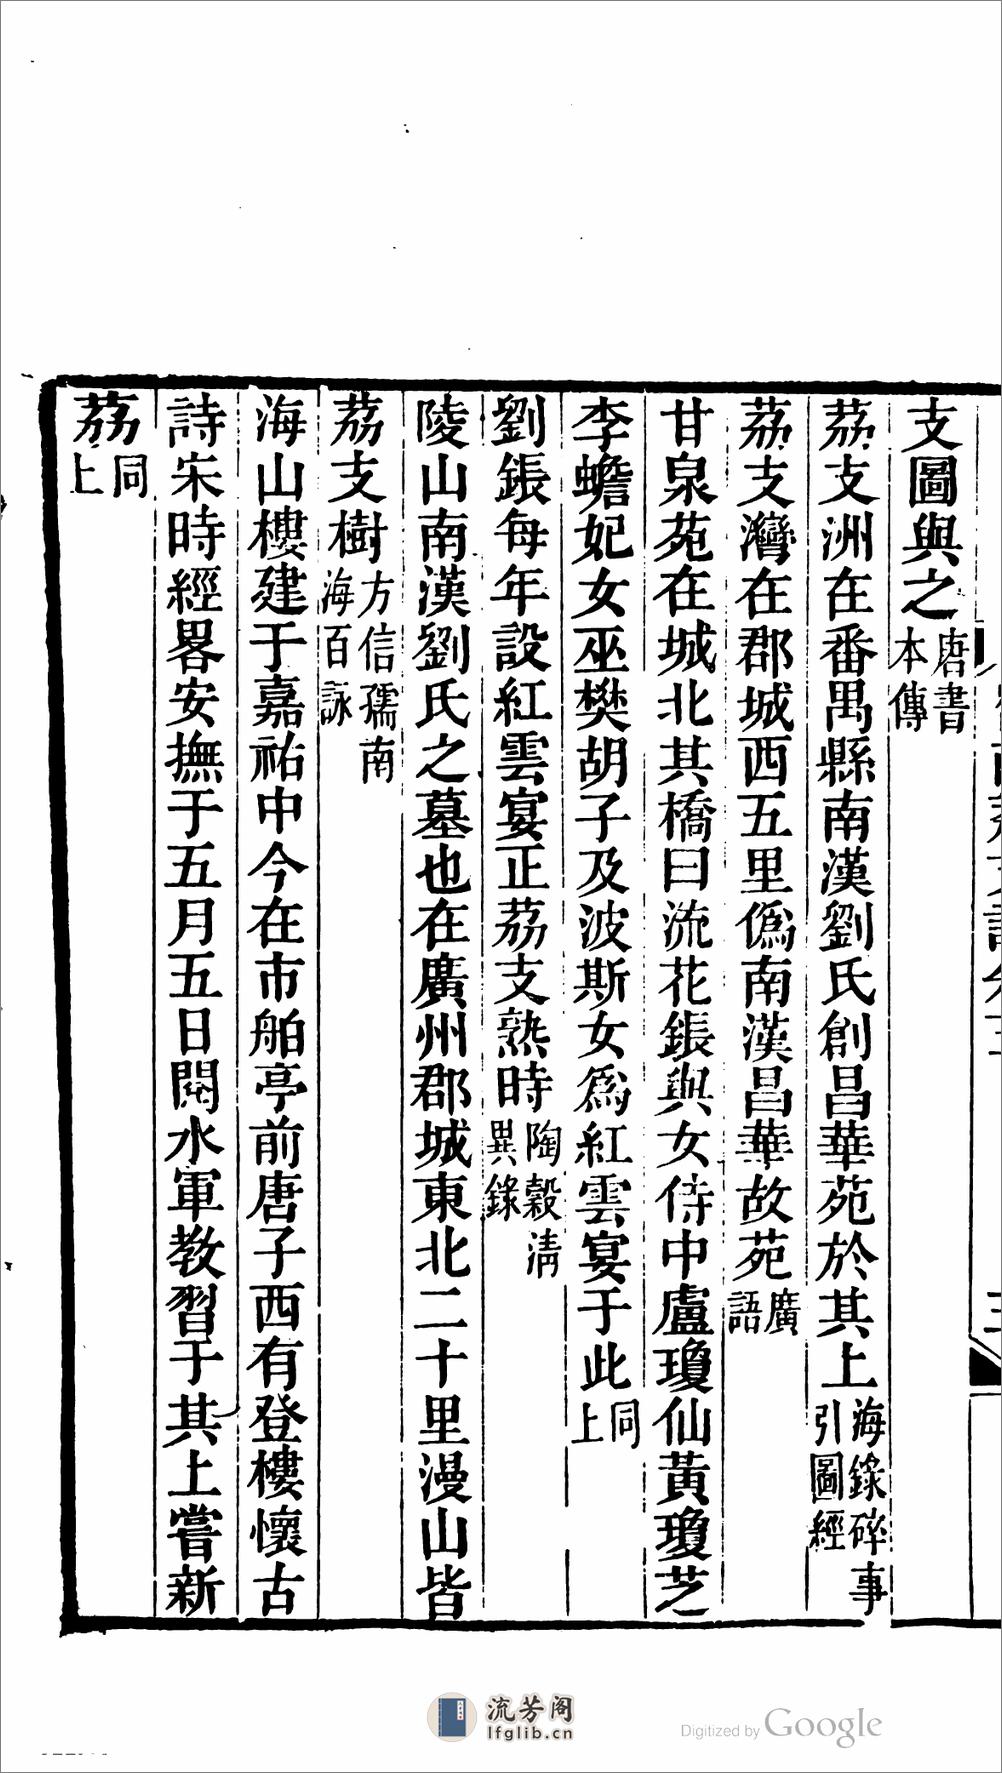 支圖與之唐書本傳
荔支洲在番禺縣南漢劉氏創昌華苑於其上海錄碎事引圖經
荔支灣在郡城西五里僞南漢昌華故苑廣語
甘泉苑在城北其橋曰流花鋹與女侍中盧瓊仙黃瓊芝
李蟾妃女巫樊胡子及波斯女爲紅雲宴于此同上
劉鋹每年設紅雲宴正荔支熟時陶穀淸異錄
陵山南漢劉氏之墓也在廣州郡城東北二十里漫山皆
荔支樹方信孺南海百詠
海山樓建于嘉祐中今在市舶亭前唐子西有登樓懷古
詩宋時經畧安撫于五月五日閱水軍敎習于其上嘗新
荔同上
流芳阁
lfglib.cn
Digitized by Google